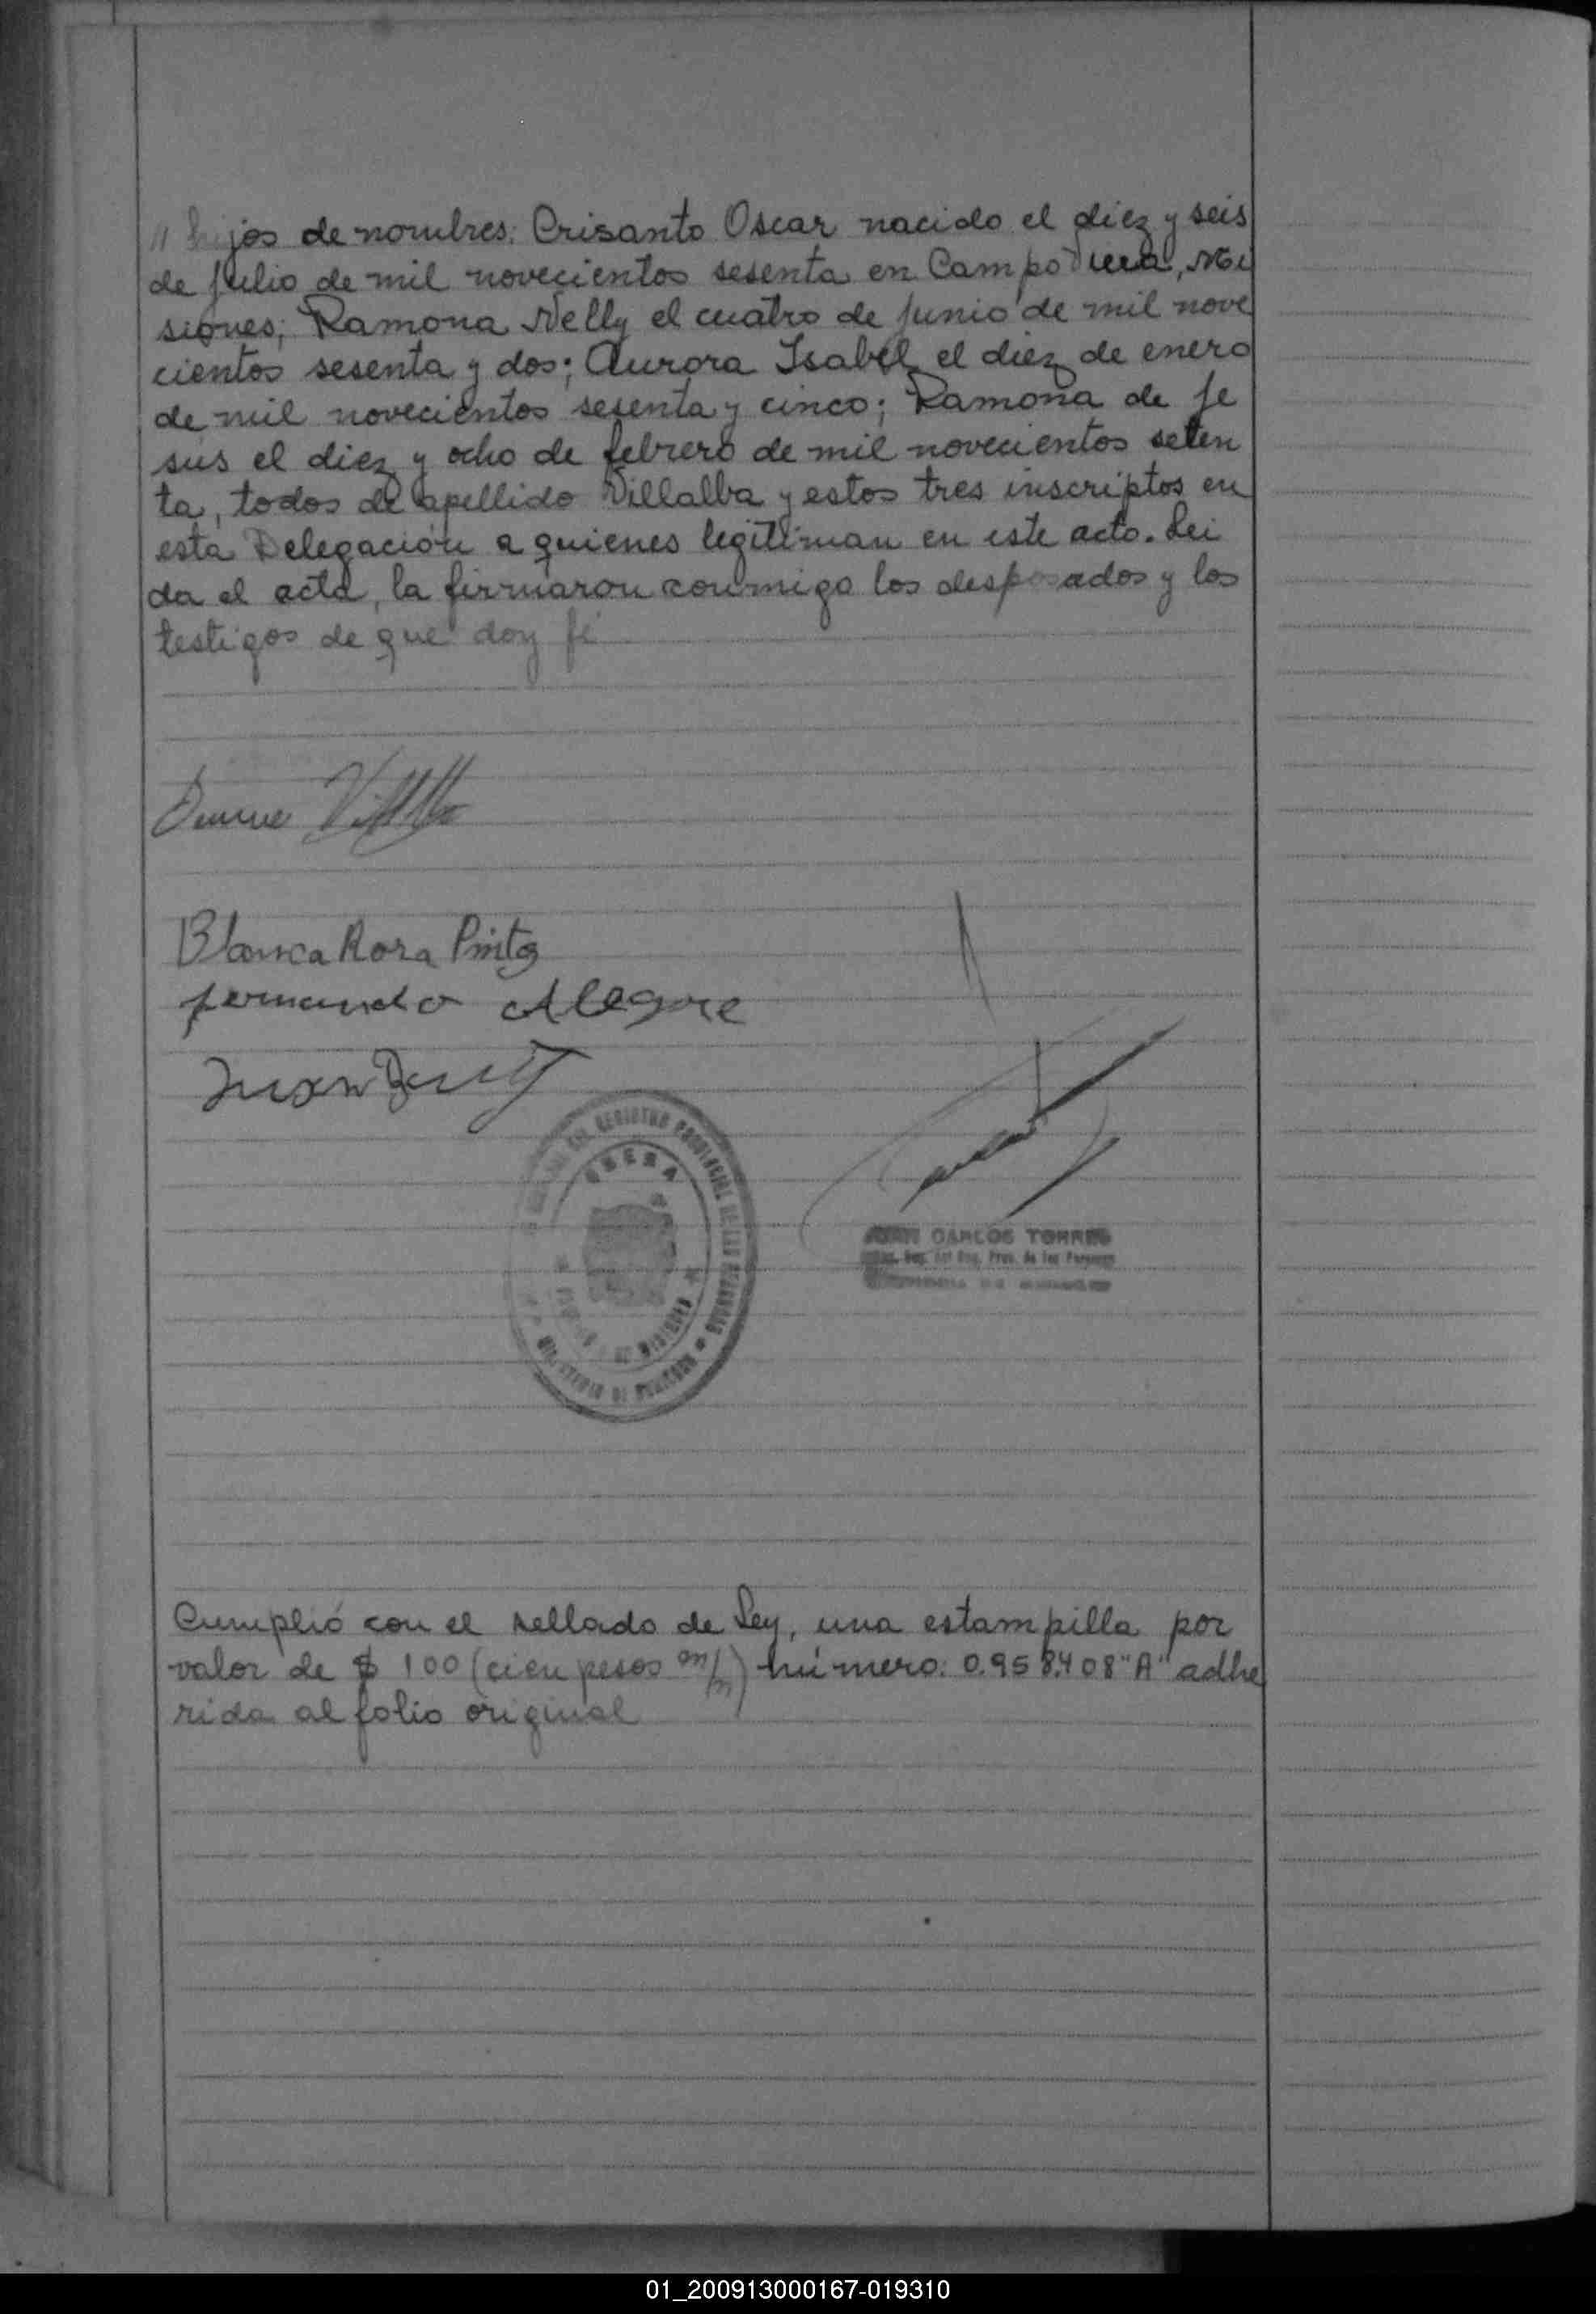 // hijos de nombres: Crisanto Oscar nacido el diez y seis
de julio de mil novecientos sesenta en Campo Viera, Mi
siones; Ramona Nelly el cuatro de junio de mil nove
cientos sesenta y dos; Aurora Isabel el diez de enero
de mil novecientos sesenta y cinco; Ramona de Je
sús el diez y ocho de febrero de mil novecientos seten
ta, todos de apellido Villalba y estos tres inscriptos en
esta Delegación a quienes legitiman en este acto. Lei
da el acta, la firmaron conmigo los desposados y los
testigos de que doy fé
Blanca Rosa Pinto
fernando Alegre
Juan
REGISTRO PROVINCIAL DE LAS PERSONAS
OBERA
MINISTERIO DE GOBIERNO
JUAN CARLOS TORRES
del Reg. Prov. de las Personas
Cumplió con el sellado de Ley, una estampilla por
valor de $ 100 (cien pesos m/n) número: 0.958.408 "A" adhe
rida al folio original
01_200913000167-019310